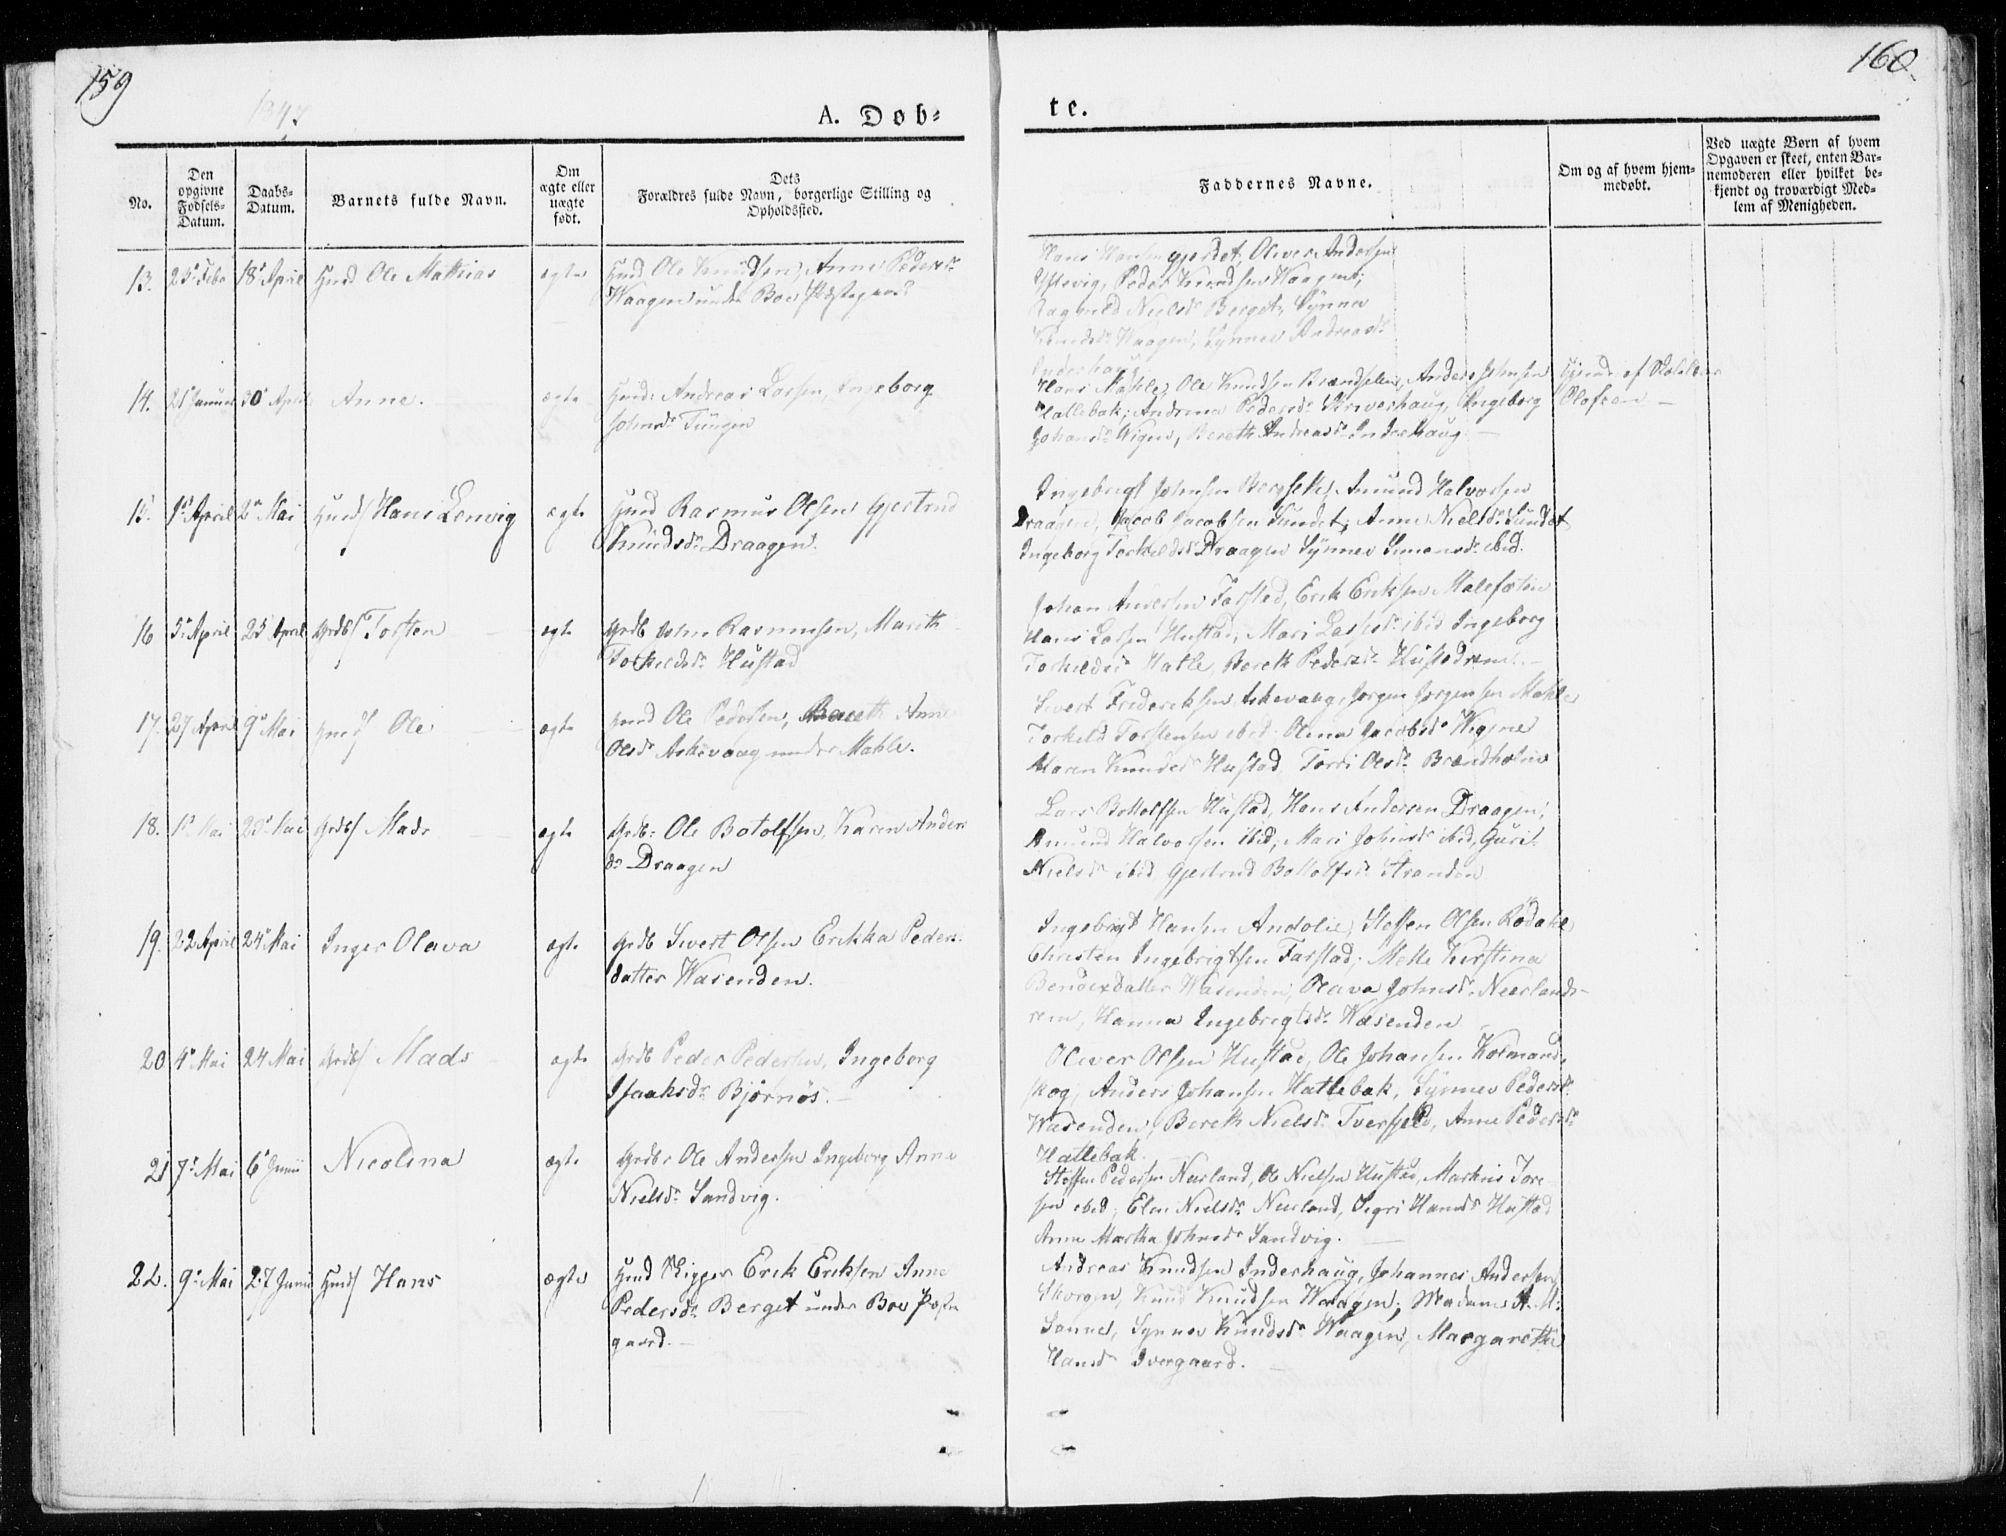 159
160.
1847
A. Døb-
te.
No.
Den opgivne Fødsels-Datum.
Daabs-Datum.
Barnets fulde Navn.
Om ægte eller uægte født.
Dets Forældres fulde Navn, borgerlige Stilling og Opholdssted.
Faddernes Navne.
Om og af hvem hjemmedøbt.
Ved uægte Børn af hvem Opgaven er skeet, enten Barnemoderen eller hvilket bekjendt og troværdigt Medlem af Menigheden.
13. 25 Febr 18 April Ole Mathias ægte
Ole Knudsen, Anne Pedersd.
Waagen under Boe
Hans Hansen gjerdet, Oliver Andersen
Peder Knudsen Waagen,
Ragnild Nielsd. Berget, Synnev
Knudsd. Waagen, Synnev Andreasd.
Inderhaug
14. 21 Januar 30 April Anne. ægte
Andreas Larsen, Ingeborg
Johnsd. Tungen
Hans Mahle, Ole Knudsen Brandholm, Anders Johnsen
Hatlebak, Andrina Pedersd. Ingeborg
Johansd. Wigen, Bereth Andreasd. Inderhaug
hjemd. af
Olafsen
15. 1 April 2 Mai Hans Lenvig ægte
Rasmus Olsen Gjertrud
Knudsd. Draagen.
Ingebrigt Johnsen Bergset, Amund Halvorsen
Draagen, Jacob Jacobsen Sundet, Anne Nielsd. Sundet
Ingeborg Torkildsd. Draagen Synnev Simonsd. ibid.
16 5 April 25 April Grdb/ Torsten ægte
Grdb John Rasmusen, Marith
Torkildsd. Hustad
Johan Andersen Farstad, Erik Eriksen Malefeten
Hans Larsen Hustad, Mari Larsd. ibid Ingeborg
Torkildsd. Hatle, Bereth Pedersd. Hustad
17. 27 April 9 Mai Ole ægte
Ole Pedersen, Bereth Anne
Olsd. Askevaag under Mahle.
Sivert Frederiksen Askevaag, Jørgen Jørgensen Mahle
Torkild Torstensen ibid. Olena Jacobsd. Wigene
Maren Knudsd. Hustad, Torri Olsd. Brandholm
18. 1 Mai 23 Mai Grdb/ Mads ægte
Grdb: Ole Botolfsen, Karen Anders
d. Draagen
Lars Bottolfsen Hustad, Hans Andersen Draagen,
Amund Halvorsen ibid, Mari Johnsd. ibid, Guri
Nielsd. ibid Gjertrud Bottolfsd. Stranden
19. 22 April 24 Mai Inger Olava ægte
Grdb Sivert Olsen Erikka Peders
datter Wasenden.
Ingebrigt Hansen Andolie, Steffen Olsen Rødahl
Christen Ingebrigtsen Farstad, Mette Kirstina
Bendixdatter Wasenden, Olava Johnsd. Neerlands-
rem, Hanna Ingebrigtsd. Wasenden
20 4 Mai 24 Mai Grdb/ Mads ægte
Grdb Peder Pedersen, Ingeborg
Isaaksd. Bjørnøs.
Oliver Olsen Hustad, Ole Johansen Kolmand-
skog, Anders Johansen Hatlebak, Synnev Pedersd.
Wasenden, Bereth Nielsd. Tverfjeld, Anne Pedersd.
Hatlebak.
21 7 Mai 6 Junii Nicolina ægte
Grdbr Ole Andersen Ingeborg Anne
Nielsd. Sandvig.
Steffen Pedersen Neerland, Ole Nielsen Hustad, Markus Tore
sen ibid, Elen Nielsd. Neerland, Sigri Hansd. Hustad
Anne Martha Johnsd. Sandvig.
22. 9 Mai 27 Junii Hans ægte
Erik Eriksen Anne
Pedersd. Berget under Boe Præste
gaard.
Andreas Knudsen Inderhaug, Johannes Andersen
Skorgen, Knud Knudsen Waagen, Madame A. M.
Sanne, Synnev Knudsd. Waagen, Margarethe
Hansd. Ivergaard.